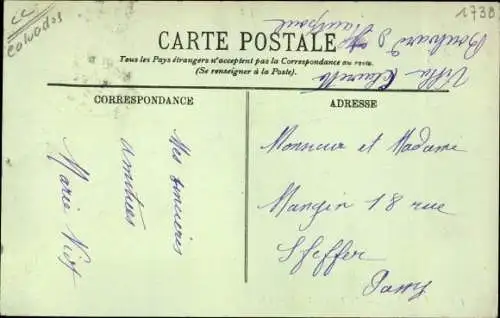 CC
Calvados
1738
Villa
Boulevard
CARTE POSTALE
Tous les Pays étrangers n'acceptent pas la Correspondance au recto.
(Se renseigner à la Poste).
CORRESPONDANCE
Mes sincères
amitiés
Marie
ADRESSE
Monsieur et Madame
Mangin 18 rue
Pfeffer